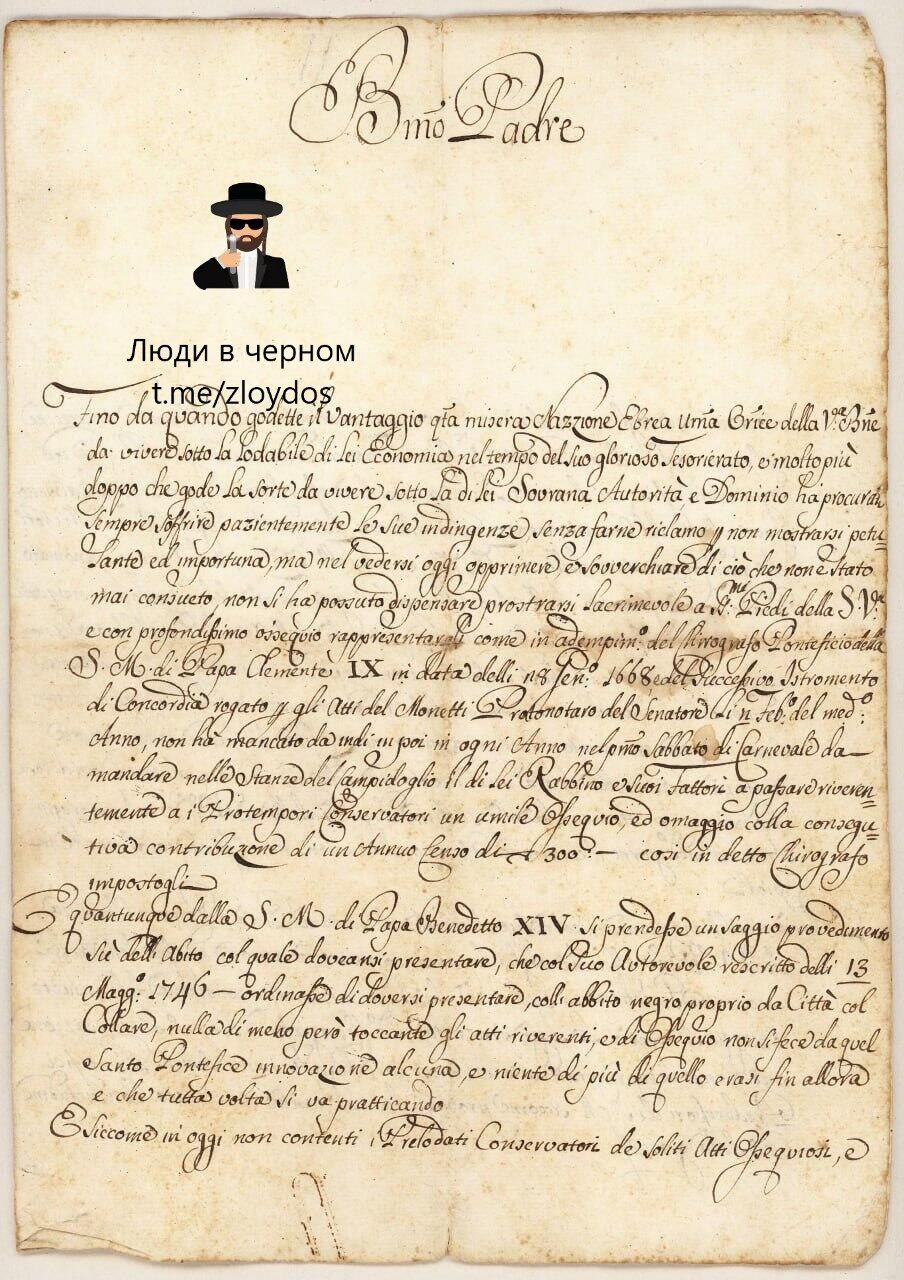 Bm̃o Padre
Люди в черном
t.me/zloydos
Fino da quando godette il Vantaggio q̃ta misera Nazzione Ebrea Um̃a Or̃ice della V.ra Bñe
da vivere sotto la Lodabile di Lei Economia nel tempo del suo glorioso Tesorierato, e molto più
doppo che gode la sorte da vivere sotto la di lei Sovrana Autorità e Dominio ha
sempre soffrire pazientemente le sue indingenze, senza farne riclamo non mostrarsi petu=
lante ed importuna, ma nel vedersi oggi opprimere e sovverchiare di ciò che non è stato
mai consueto, non si ha possuto dispensare prostrarsi lacrimevole a Piedi della S. V.ra
e con profondissimo ossequio rappresentarli come in adempim.o del Chirografo Pontificio della
S. M. di Papa Clemente IX in data delli 1668 e del successivo Istromento
di Concordia rogato gli Atti del Monetti Protonotaro del Senatore li Feb.o del med.o
Anno, non hà mancato da indi in poi in ogni Anno nel pm̃o Sabbato di Carnevale da
mandare nelle Stanze del Campidoglio il di Lei Rabbino e suoi Fattori a passare riveren=
temente a i Protempori Conservatori un umile Ossequio, ed omaggio colla consegu=
tiva contribuzone di un Annuo Censo di 300:— così in detto Chirografo
impostogli
E quantunque dalla S. M. di Papa Benedetto XIV si prendesse un saggio provedimento
sù dell Abito col quale doveansi presentare, che col suo Autorevole rescritto delli 13
Magg.o 1746 — ordinasse di doversi presentare, coll abbito negro proprio da Città col
Collare, nulla di meno però toccante gli atti riverenti, e di Ossequio non si fece da quel
Santo Pontefice innovazione alcuna, e niente di più di quello erasi fin allora
e che tutta volta si va pratticando
E siccome in oggi non contenti i Prelodati Conservatori de soliti Atti Ossequiosi, e